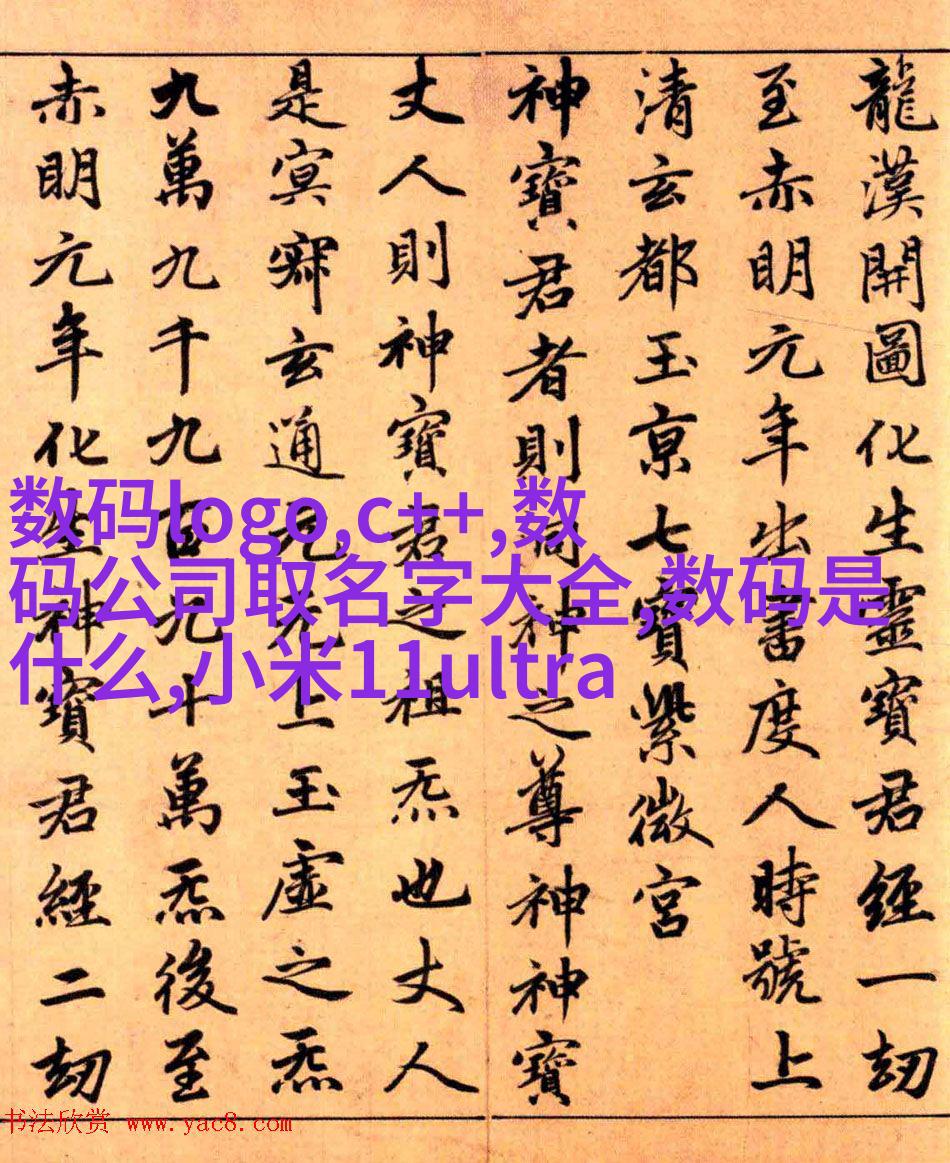 龍漢開圖化生靈寶君經一劫
至赤明元年出書度人時號上
清玄都玉京七寶紫微宮
神寶君者則洞神之尊神神寶
丈人則神寶君之祖炁也丈人
是冥寂玄通元无上玉虛之炁
九萬九千九百九十萬炁後至
赤明元年化生神寶君經二劫
数码logo,c++,数
码公司取名字大全,数码是
什么,小米11ultra
书法欣赏 www.yac8.com